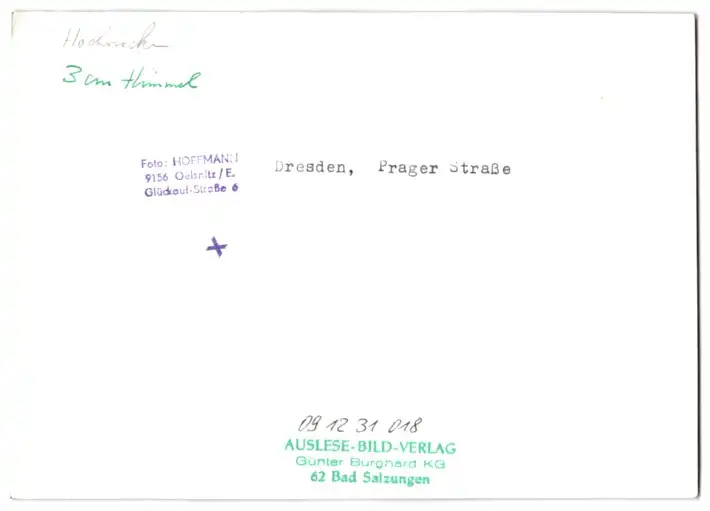 3 cm Himmel
Foto: HOFFMANN
9156 Oelsnitz/E.
Glückauf-Straße 6
Dresden, Prager Straße
09 12 31 018
AUSLESE-BILD-VERLAG
Günter Burghard KG
62 Bad Salzungen